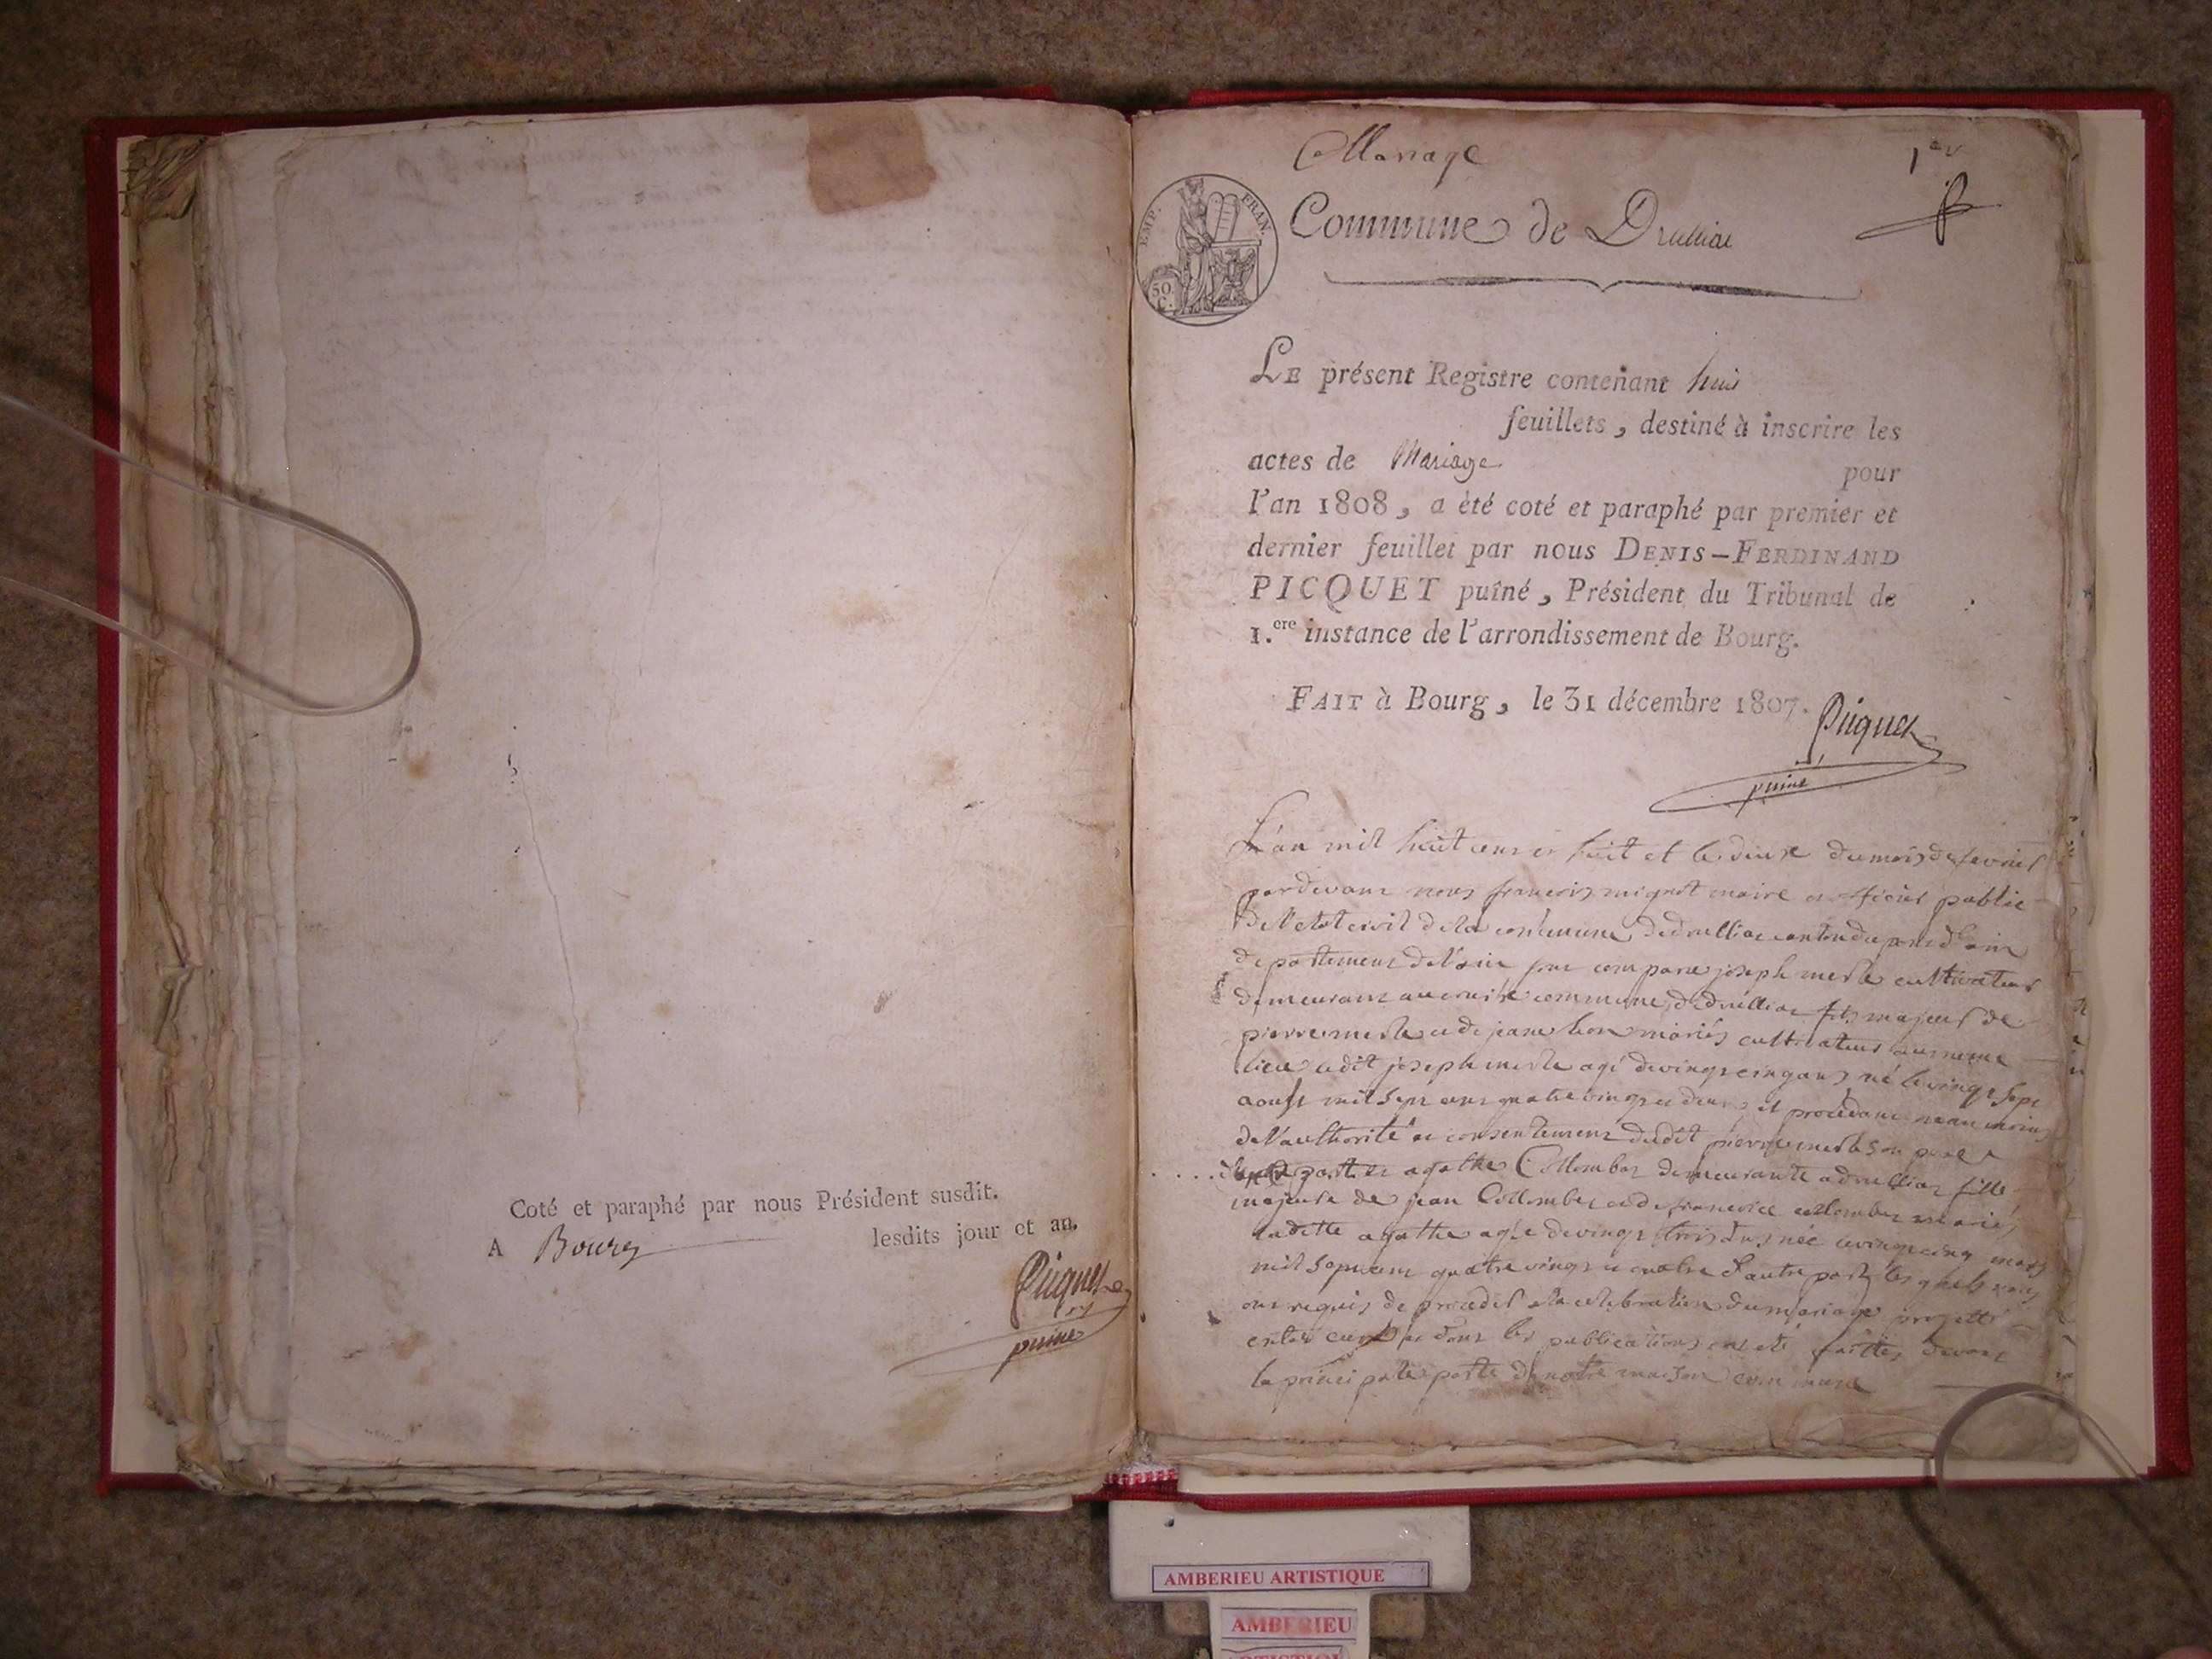 Coté et paraphé par nous Président susdit.
A Bourg lesdits jour et an.
Picquet
puiné
Mariage
1er
EMP. FRAN.
50 C.
Commune de Druillia
LE présent Registre contenant huit
feuillets, destiné à inscrire les
actes de Mariage pour
l'an 1808, a été coté et paraphé par premier et
dernier feuillet par nous DENIS-FERDINAND
PICQUET puîné, Président du Tribunal de
1.ere instance de l'arrondissement de Bourg.
FAIT à Bourg, le 31 décembre 1807.
Picquet
puiné
L'an mil huit cens et huit et le du mois de fevrier
pardevant nous francois mignot maire et officier public
de l'etat civil de la commune de druilliat canton du pont d'ain
departement de l'ain sont comparu joseph merle cultivateur
demeurant commune de druilliat fils majeur de
pierre merle et de jeane mariés cultivateurs au meme
lieu ledit joseph merle agé de vingt cinq ans né le vingt sept
aoust mil sept cent quatre vingt et deux et procedant neanmoins
de l'authorité et consentement dudit pierre merle son pere
agathe Collombet demeurante a druilliat fille
majeure de jean Collombet et de francoise collombet mariés
ladette agathe agée de vingt trois ans née le vingt cinq mars
mil sept cent quatre vingt et quatre d'autre part lesquels nous
ont requis de proceder a la celebration du mariage projetté
entre eux et dont les publications ont eté faittes devant
la principale porte de notre maison commune
AMBERIEU ARTISTIQUE
AMBERIEU
ARTISTIQUE